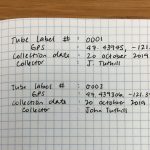 Tube Label # : 0001
GPS : 49.43995, -121.
Collection date : 20 October 2019
Collector : J. Tuthill
Tube Label # : 0003
GPS : 49.439306, -121.3
Collection date : 20 October 2019
Collector : John Tuthill